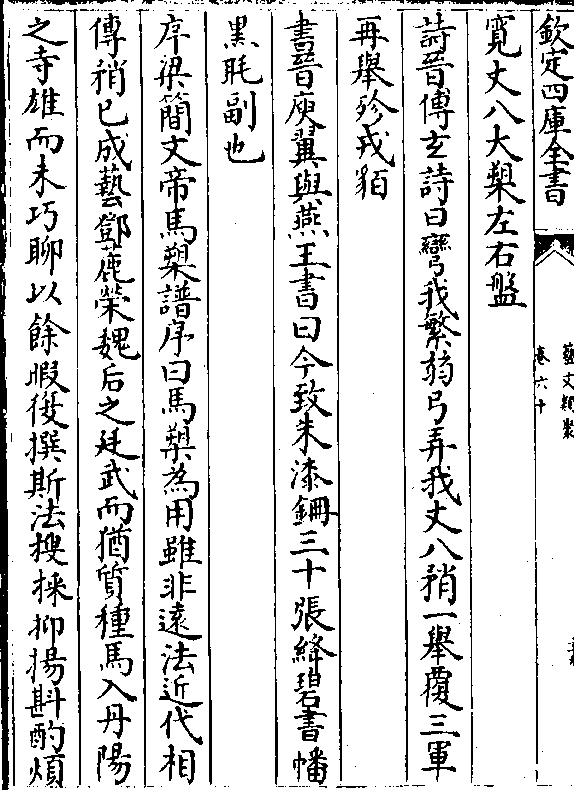 欽定四庫全書
藝文類聚
卷六十
寛丈八大槊左右盤
詩晉傅玄詩曰彎我繁弱弓弄我丈八矟一舉覆三軍
再舉殄戎貊
書晉庾翼與燕王書曰今致朱漆鎙三十張絳碧書幡
黑眊副也
序梁簡文帝馬槊譜序曰馬槊為用雖非遠法近代相
傳稍已成藝鄧蔍榮魏后之廷武而猶質種馬入丹陽
之寺雄而未巧聊以餘暇復撰斯法搜採抑揚斟酌煩